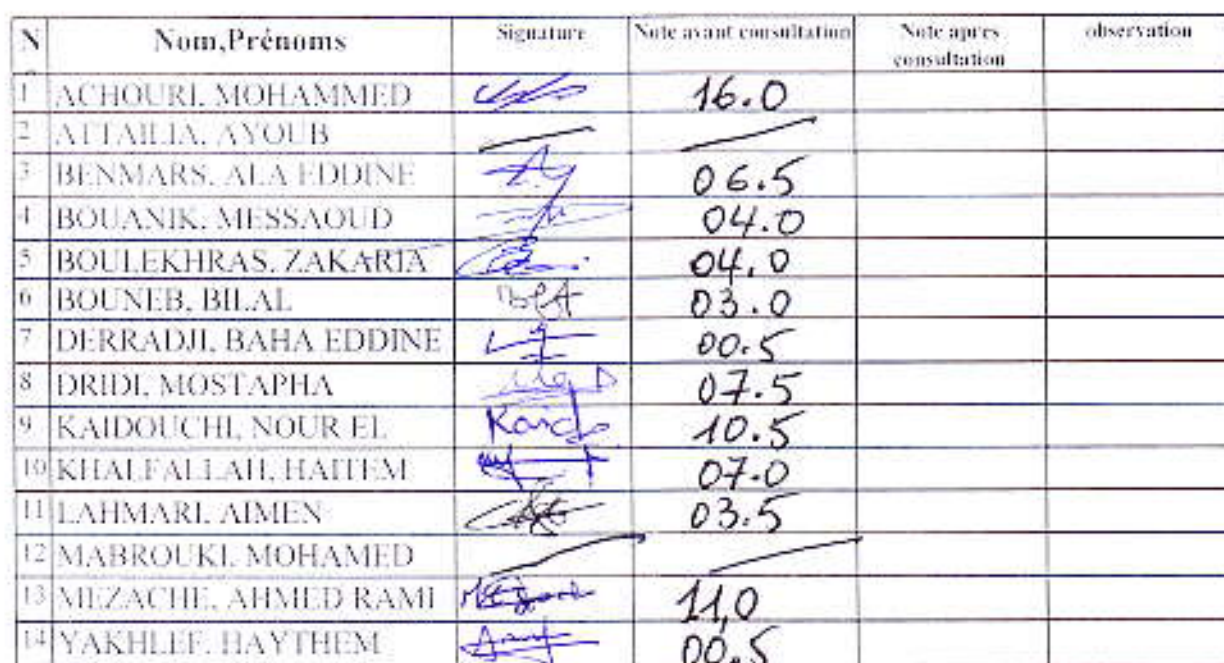 N Nom,Prénoms Signature Note avant consultation Note apres consultation observation
1 ACHOURI, MOHAMMED 16.0
2 ATTAILIA, AYOUB
3 BENMARS, ALA EDDINE 06.5
4 BOUANIK, MESSAOUD 04.0
5 BOULEKHRAS, ZAKARIA 04.0
6 BOUNEB, BILAL 03.0
7 DERRADJI, BAHA EDDINE 00.5
8 DRIDI, MOSTAPHA 07.5
9 KAIDOUCHI, NOUR EL 10.5
10 KHALFALLAH, HAITEM 07.0
11 LAHMARI, AIMEN 03.5
12 MABROUKI, MOHAMED
13 MEZACHE, AHMED RAMI 11,0
14 YAKHLEF, HAYTHEM 00.5